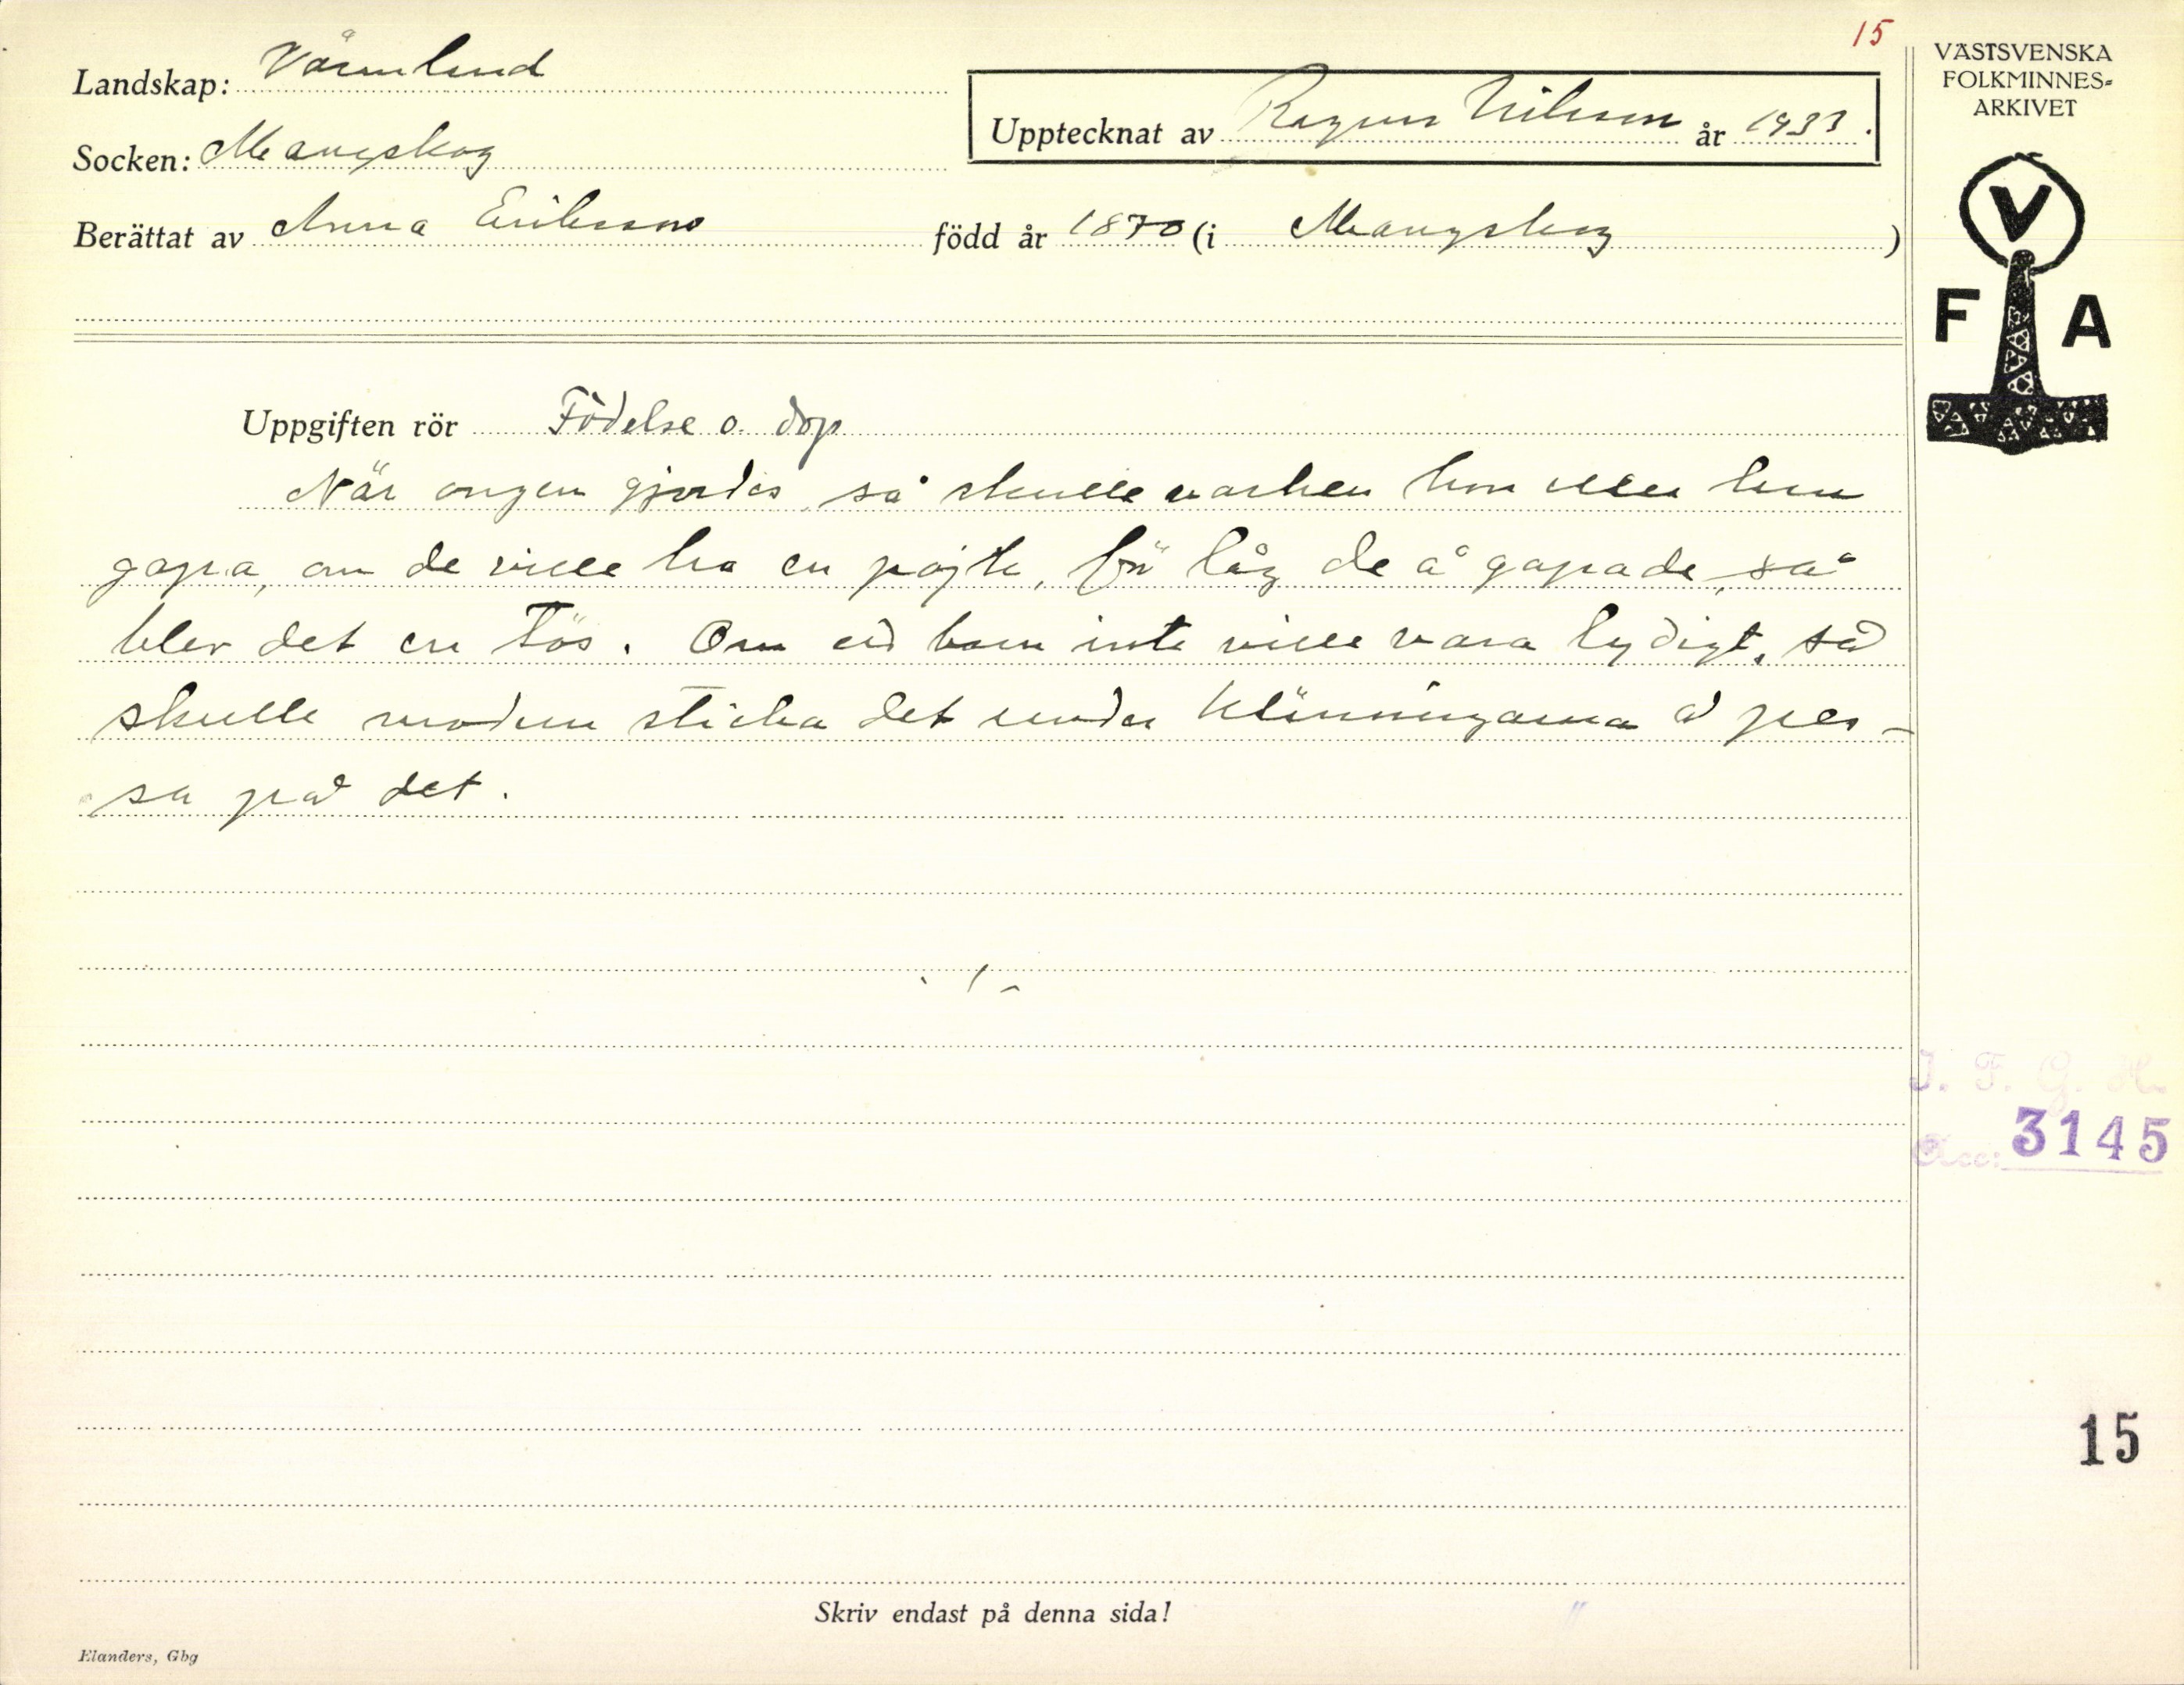 15
Landskap: Värmland
Socken: Mangskog
Upptecknat av Ragnar Nilsson år 1933.
Berättat av Anna Eriksson född år 1870 (i Mangskog)
VÄSTSVENSKA
FOLKMINNES-
ARKIVET
V
F A
Uppgiften rör Födelse o. dop
När ongen gjordes, så skulle varken hon eller han
gapa, om de ville ha en pojke, för låg de å gapade, så
blev det en tös. Om ett barn inte ville vara lydigt, så
skulle modern sticka det under klänningarna å pes-
sa på det.
I. F. G. H.
Acc: 3145
15
Skriv endast på denna sida!
Elanders, Gbg